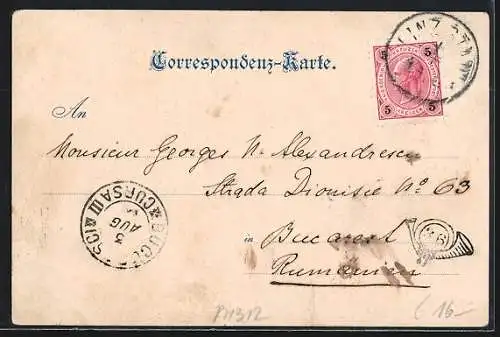 LINZ
Correspondenz-Karte.
5 5
5 5
An
Monsieur Georges N. Alexandrescu
Strada Dionisie No 63
CURSA III
3
AUG
in Bucarest
Rumänien